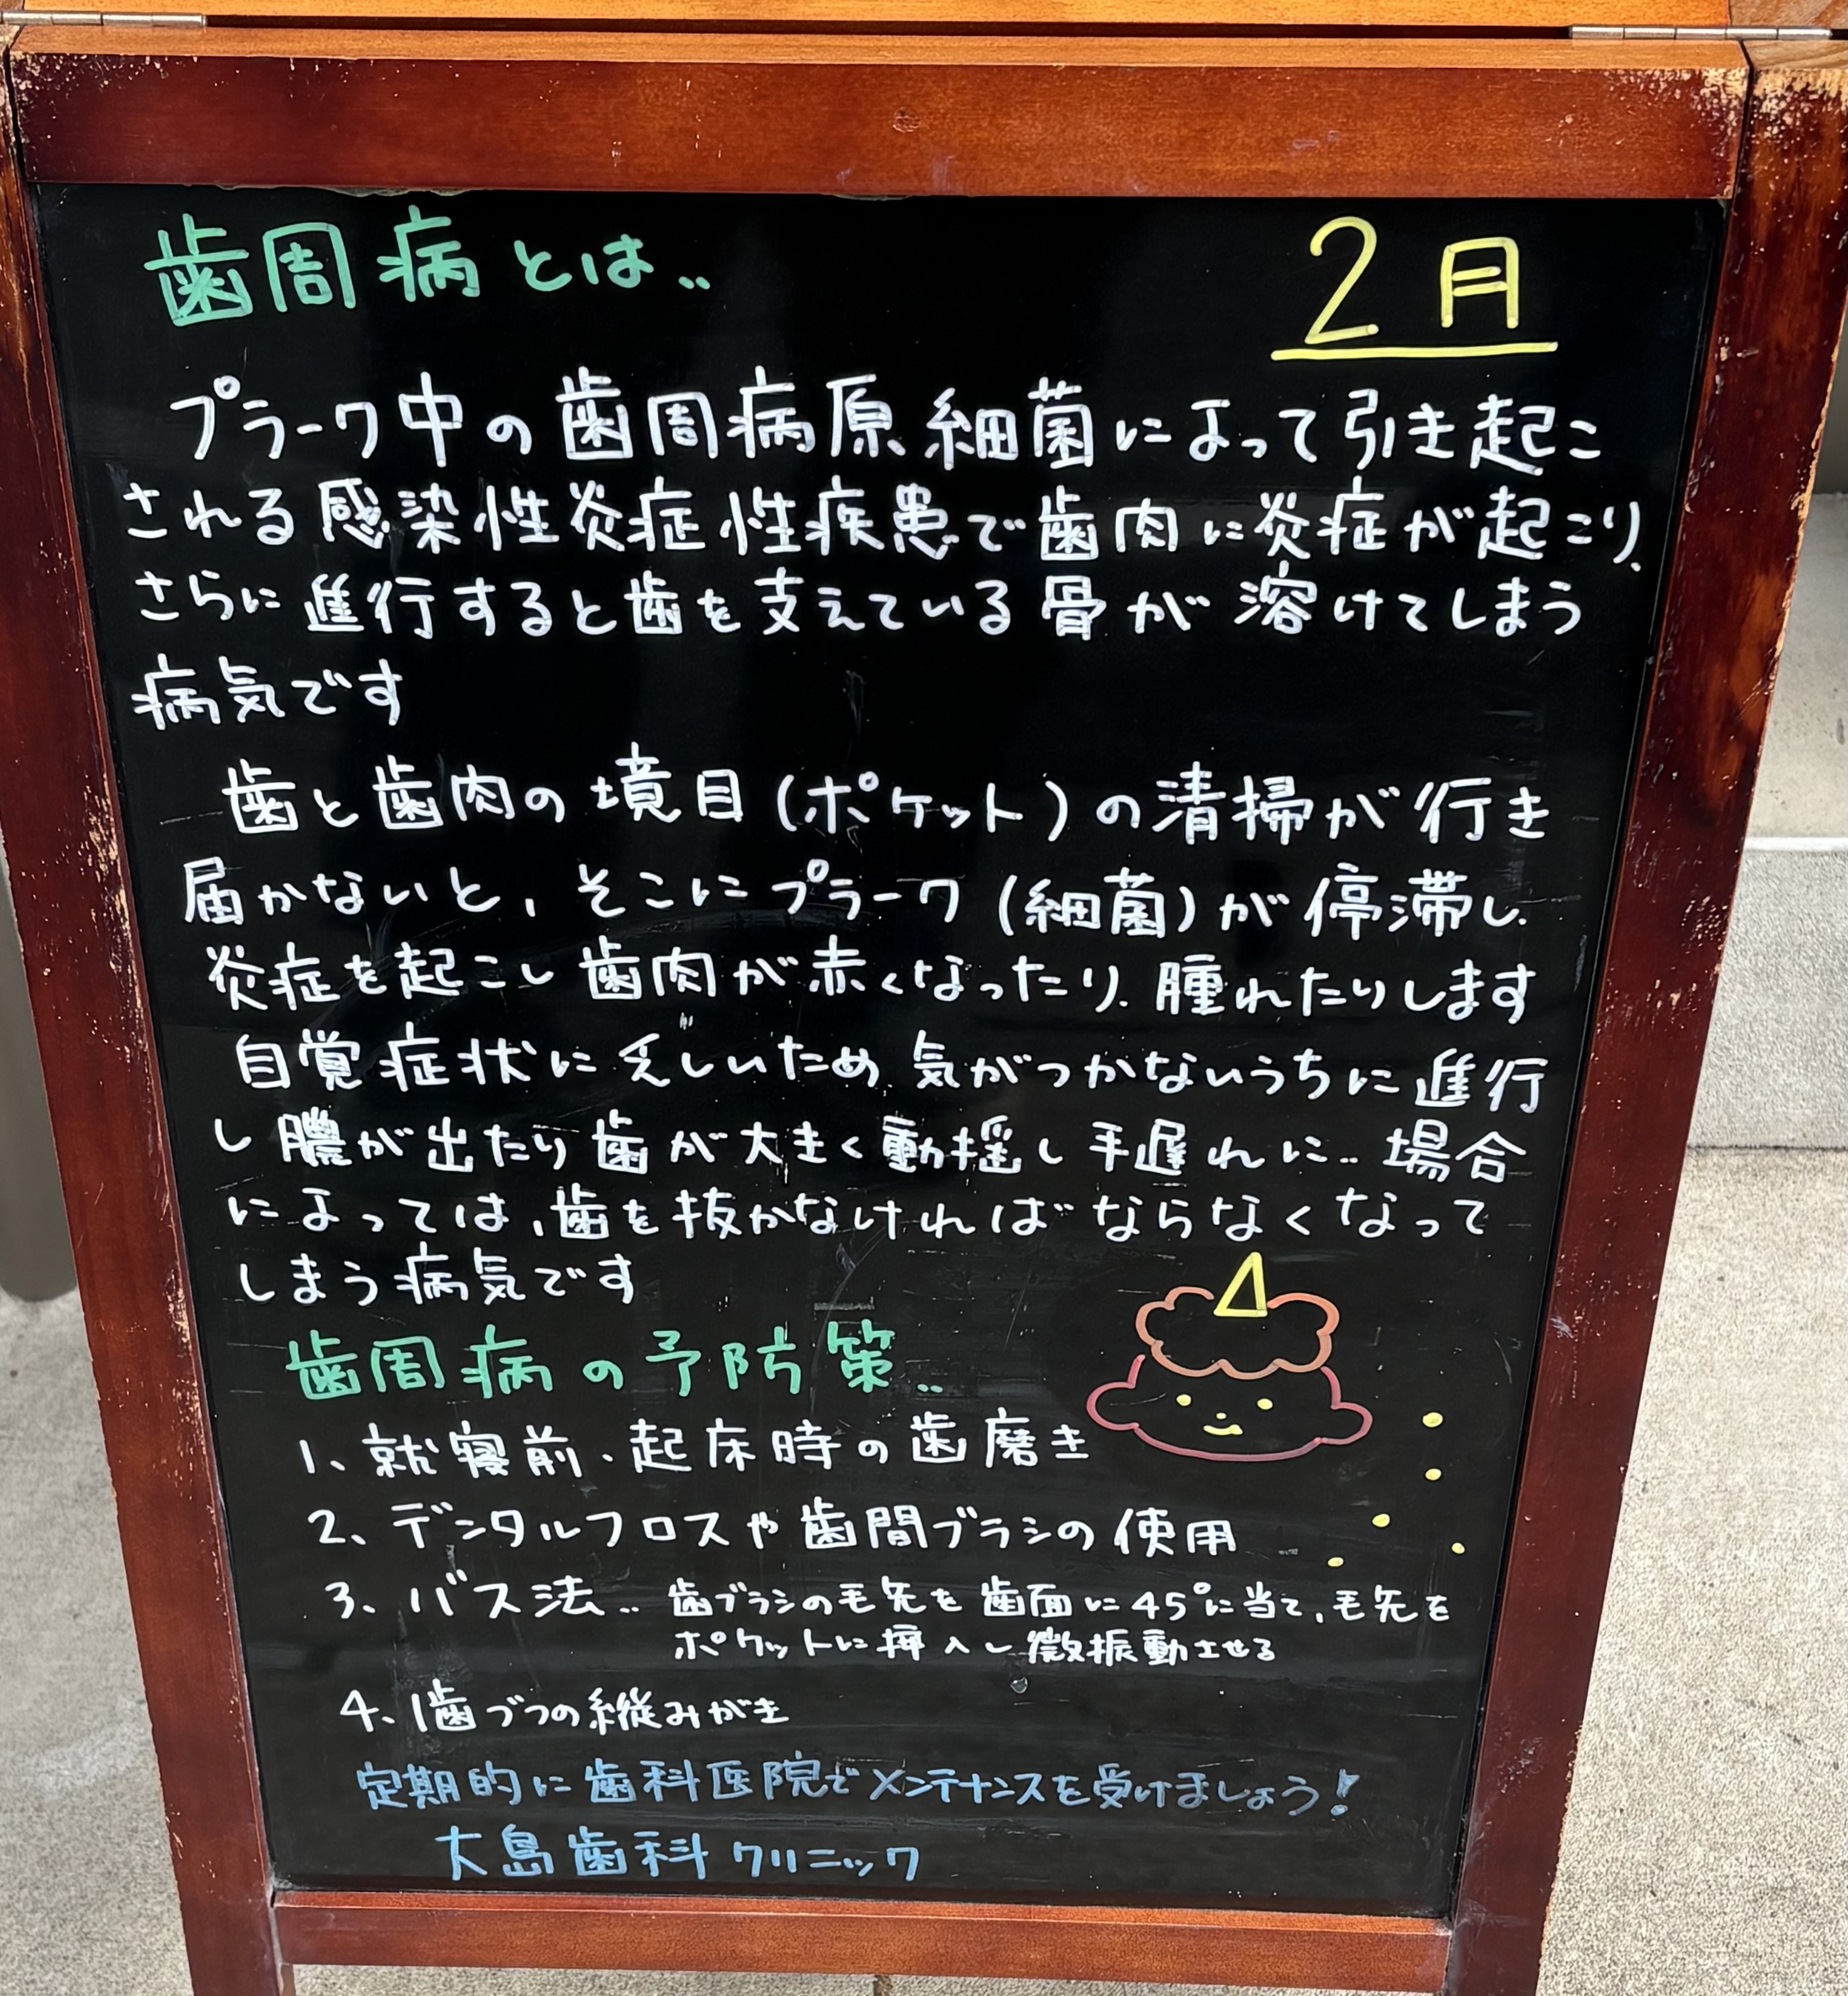 歯周病とは‥
2月
プラーク中の歯周病原細菌によって引き起こ
される感染性炎症性疾患で歯肉に炎症が起こり、
さらに進行すると歯を支えている骨が溶けてしまう
病気です
歯と歯肉の境目(ポケット)の清掃が行き
届かないと、そこにプラーク(細菌)が停滞し、
炎症を起こし歯肉が赤くなったり、腫れたりします
自覚症状に乏しいため、気がつかないうちに進行
し膿が出たり歯が大きく動揺し手遅れに‥場合
によっては、歯を抜かなければならなくなって
しまう病気です
歯周病の予防策‥
1、就寝前、起床時の歯磨き
2、デンタルフロスや歯間ブラシの使用
3、バス法‥ 歯ブラシの毛先を歯面に45°に当て、毛先を
ポケットに挿入し微振動させる
4、1歯づつの縦みがき
定期的に歯科医院でメンテナンスを受けましょう!
大島歯科クリニック